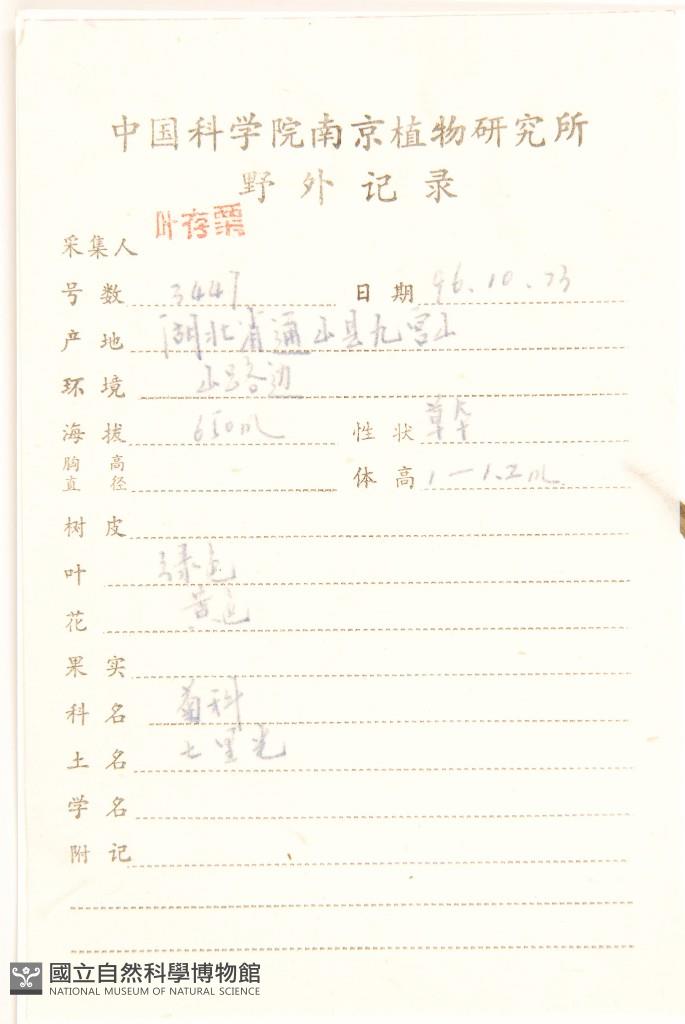 中国科学院南京植物研究所
野外记录
采集人 叶存粟
号数 3447 日期 96.10.23
产地 湖北省通山县九宫山
环境 山路边
海拔 650m 性状 草本
胸高直径 体高 1—1.2m
树皮
叶 绿色
花 黄色
果实
科名 菊科
土名 七里光
学名
附记
國立自然科學博物館
NATIONAL MUSEUM OF NATURAL SCIENCE